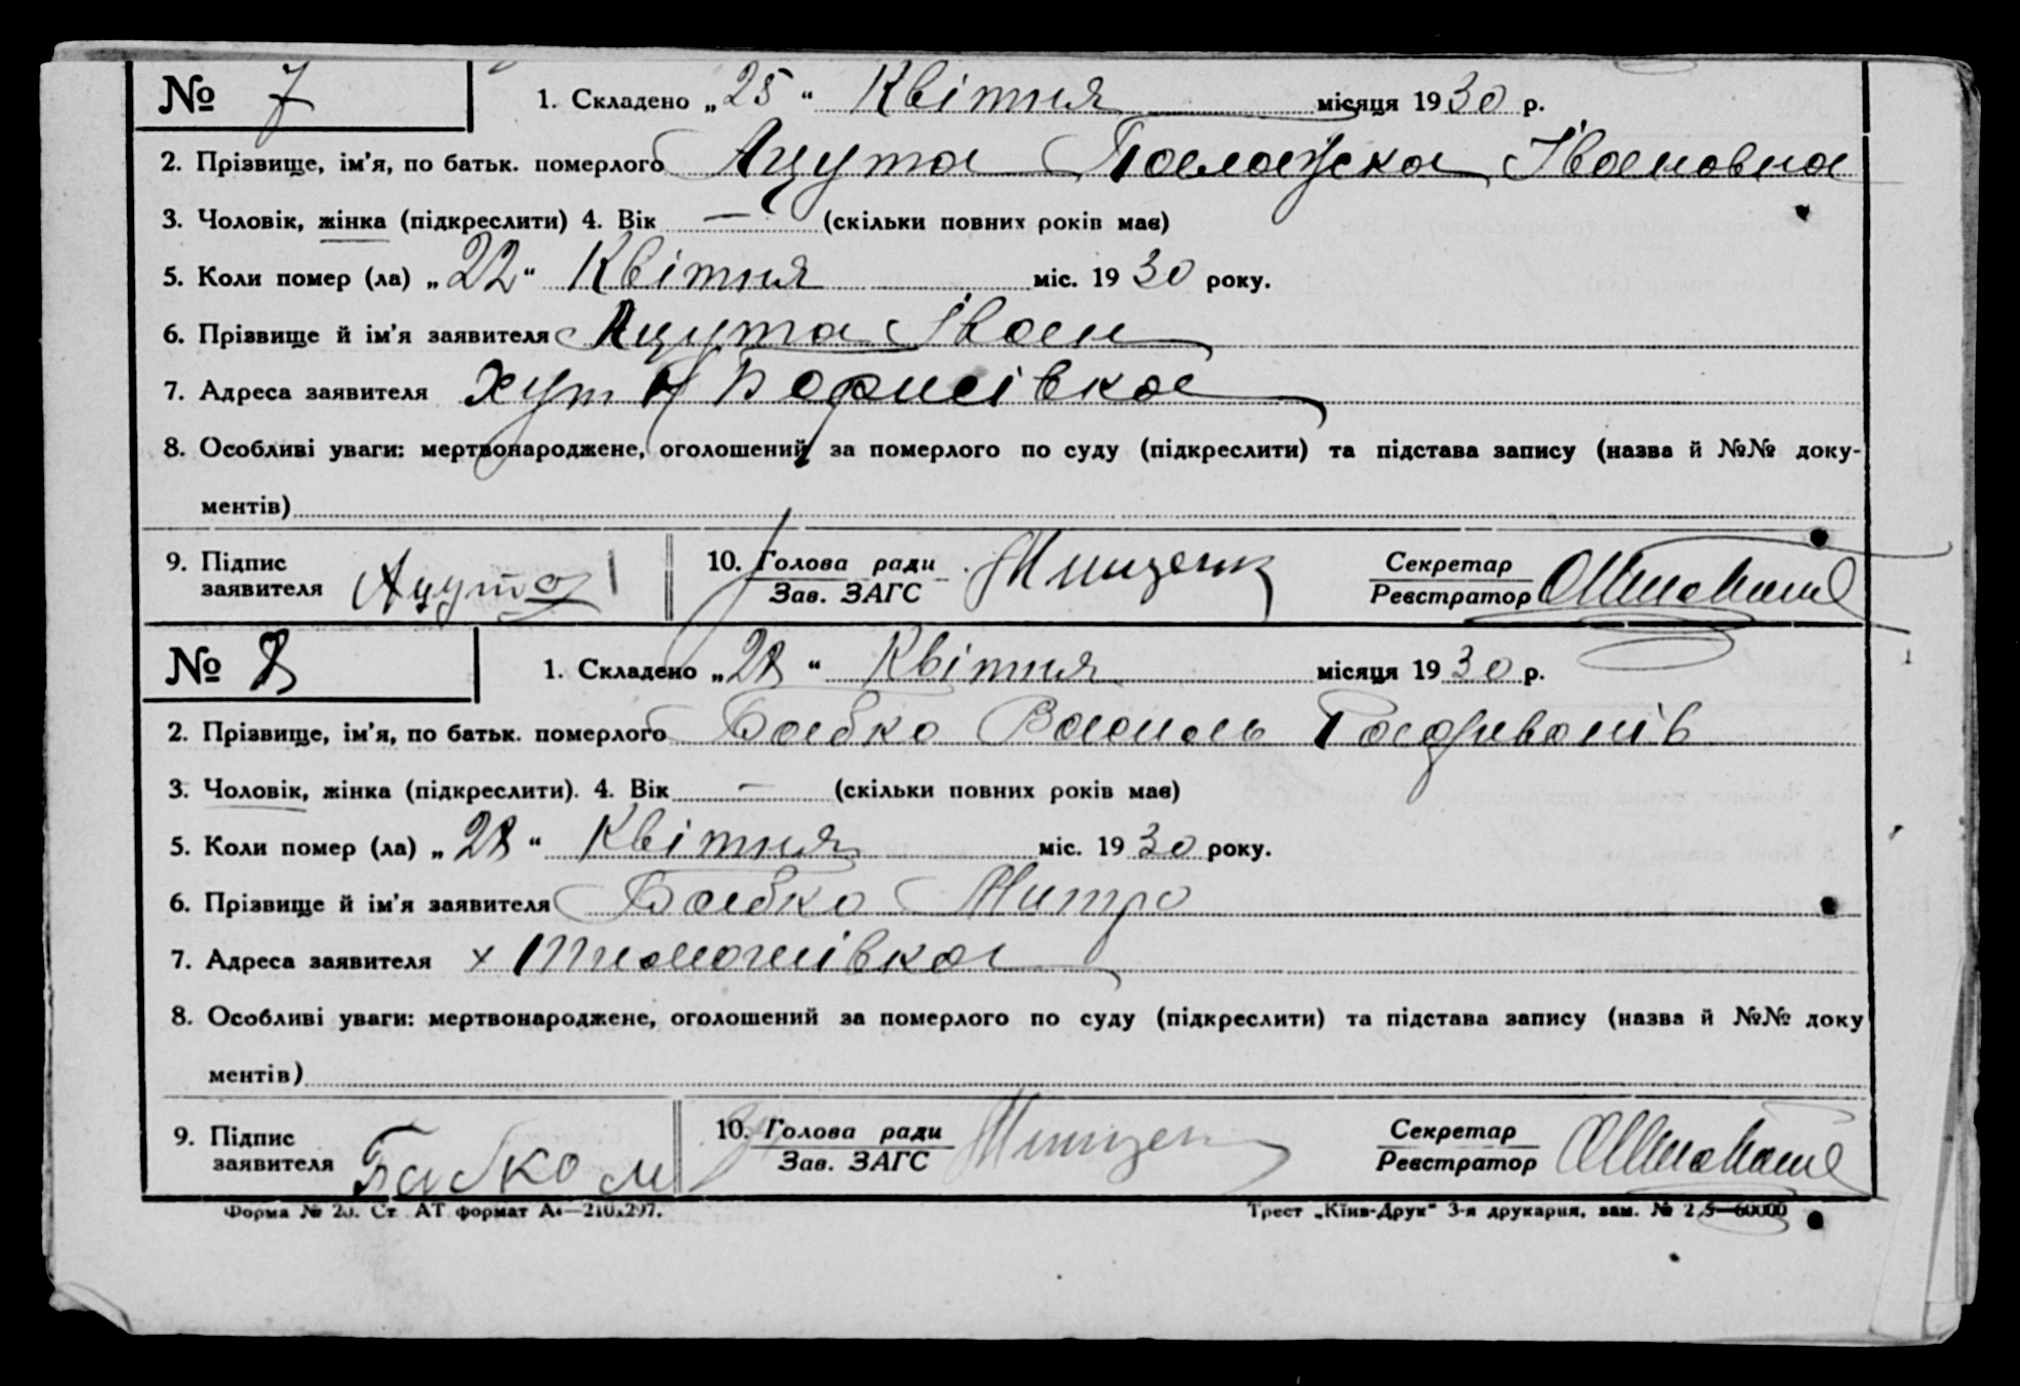 № 7 1. Складено „25“ Квітня місяця 1930 р.
2. Прізвище, ім'я, по батьк. померлого Ацута Палажка Івановна
3. Чоловік, жінка (підкреслити) 4. Вік — (скільки повних років має)
5. Коли помер (ла) „22“ Квітня міс. 1930 року.
6. Прізвище й ім'я заявителя Ацута Іван
7. Адреса заявителя хут Борисівка
8. Особливі уваги: мертвонароджене, оголошений за померлого по суду (підкреслити) та підстава запису (назва й №№ доку-
ментів)
9. Підпис заявителя Ацута І 10. Голова ради Зав. ЗАГС Мищенк Секретар Реєстратор
№ 8 1. Складено „28“ Квітня місяця 1930 р.
2. Прізвище, ім'я, по батьк. померлого Бабко Василь
3. Чоловік, жінка (підкреслити). 4. Вік — (скільки повних років має)
5. Коли помер (ла) „28“ Квітня міс. 1930 року.
6. Прізвище й ім'я заявителя Бабко Митро
7. Адреса заявителя х
8. Особливі уваги: мертвонароджене, оголошений за померлого по суду (підкреслити) та підстава запису (назва й №№ доку
ментів)
9. Підпис заявителя Бабко М 10. Голова ради Зав. ЗАГС Мищен Секретар Реєстратор
Форма № 20. Ст АТ формат А4—210x297. Трест „Київ-Друк“ 3-я друкарня, зам. №